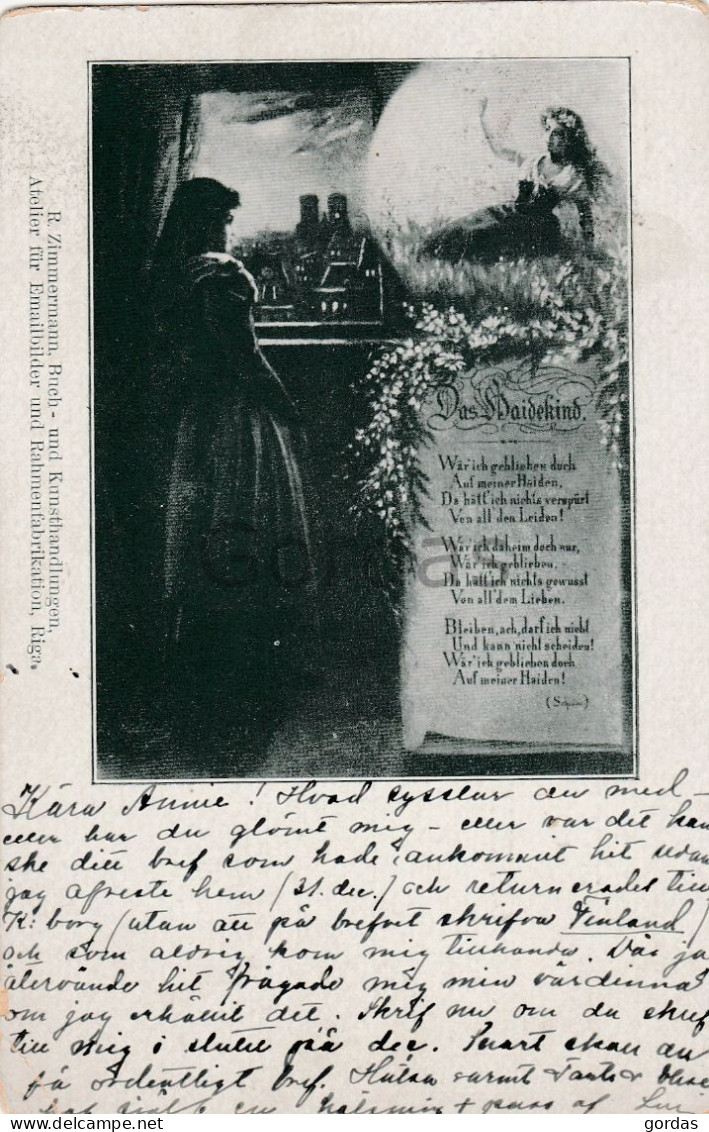 R. Zimmermann, Buch- und Kunsthandlungen,
Atelier für Emailbilder und Rahmenfabrikation, Riga.
Das Haidekind.
Wär' ich geblieben doch
Auf meiner Haiden,
Da hätt' ich nichts verspürt
Von all' den Leiden!
Wär' ich daheim doch nur,
Wär' ich geblieben,
Da hätt' ich nichts gewusst
Von all' dem Lieben.
Bleiben, ach, darf ich nicht
Und kann nicht scheiden!
Wär' ich geblieben doch
Auf meiner Haiden!
Gordas
Kära Annie! Hvad sysslar du med –
eller har du glömt mig – eller var det kan
ske ditt bref som hade ankommit hit sedan
jag afreste hem (31. dec.) och returnerades till
K:borg (utan att på brefvet skrifva Finland)
och som aldrig kom mig tillhanda. Då ja
återvände hit frågade mig min värdinna
om jag erhållit det. Skrif nu om du skref
till mig i slutet på dec. Snart skall du
få ordentligt bref. Hälsa varmt Tant
själf en
af
gordas